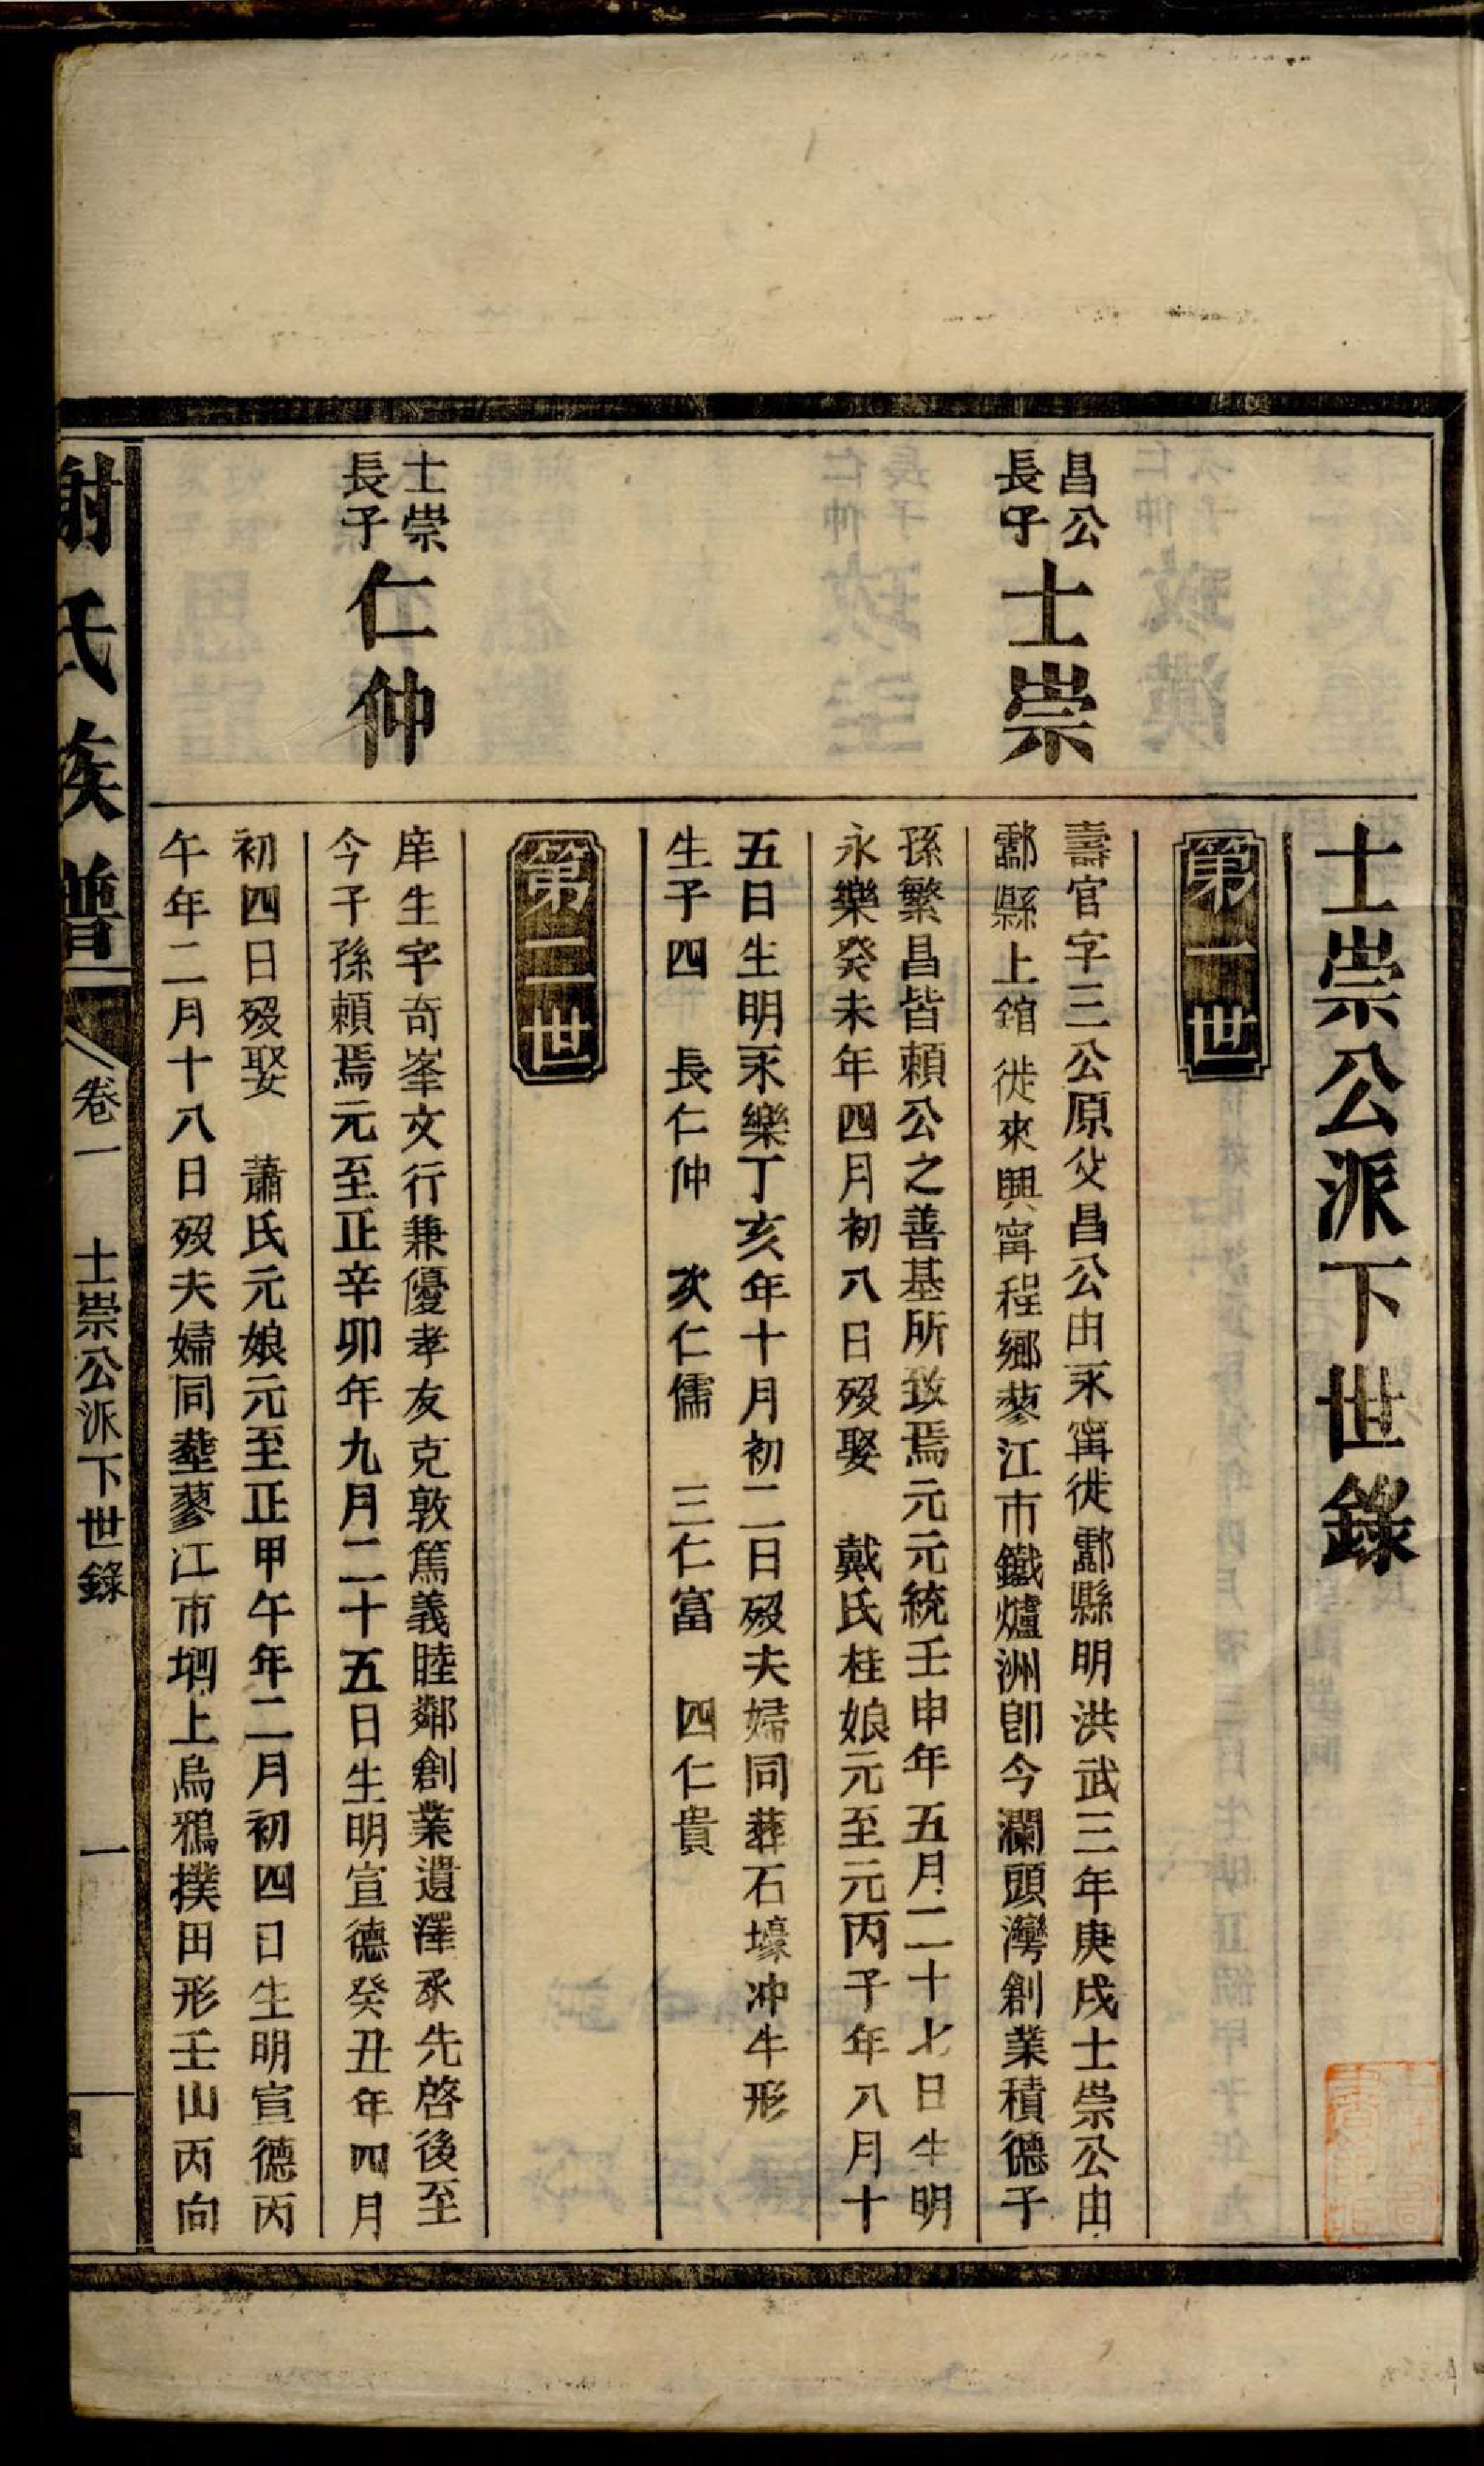 士崇公派下世錄
第一世
昌公
長子
士崇
壽官字三公原父昌公由永甯徙酃縣明洪武三年庚戌士崇公由
酃縣上舘徙來興甯程鄉蓼江市鐵爐洲卽今瀾頭灣創業積德子
孫繁昌皆頼公之善基所致焉元元統壬申年五月二十七日生明
永樂癸未年四月初八日歿娶　戴氏桂娘元至元丙子年八月十
五日生明永樂丁亥年十月初二日歿夫婦同葬石壕冲牛形
生子四　長仁仲　次仁儒　三仁富　四仁貴
第二世
士崇
長子
仁仲
庠生字奇峯文行兼優孝友克敦篤義睦鄰創業遺澤承先啓後至
今子孫頼焉元至正辛卯年九月二十五日生明宣德癸丑年四月
初四日歿娶　蕭氏元娘元至正甲午年二月初四日生明宣德丙
午年二月十八日歿夫婦同塟蓼江市垇上烏鴉撲田形壬山丙向
謝氏族譜
卷一　士崇公派下世錄　一